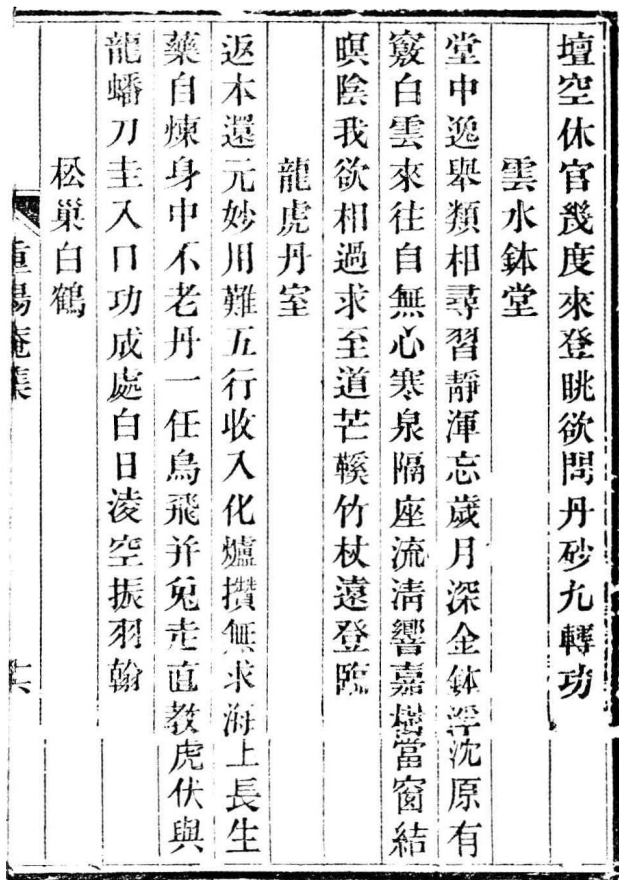 壇空休官幾度來登眺欲問丹砂九轉功
雲水鉢堂
堂中逸舉類相尋習靜渾忘歲月深金鉢浮沈原有
竅白雲來往自無心寒泉隔座流清響嘉樹當窗結
暝陰我欲相過求至道芒鞵竹杖遠登臨
龍虎丹室
返本還元妙用難五行收入化爐攢無求海上長生
藥自煉身中不老丹一任烏飛并兔走直教虎伏與
龍蟠刀圭入口功成處白日凌空振羽翰
松巢白鶴
重陽庵集